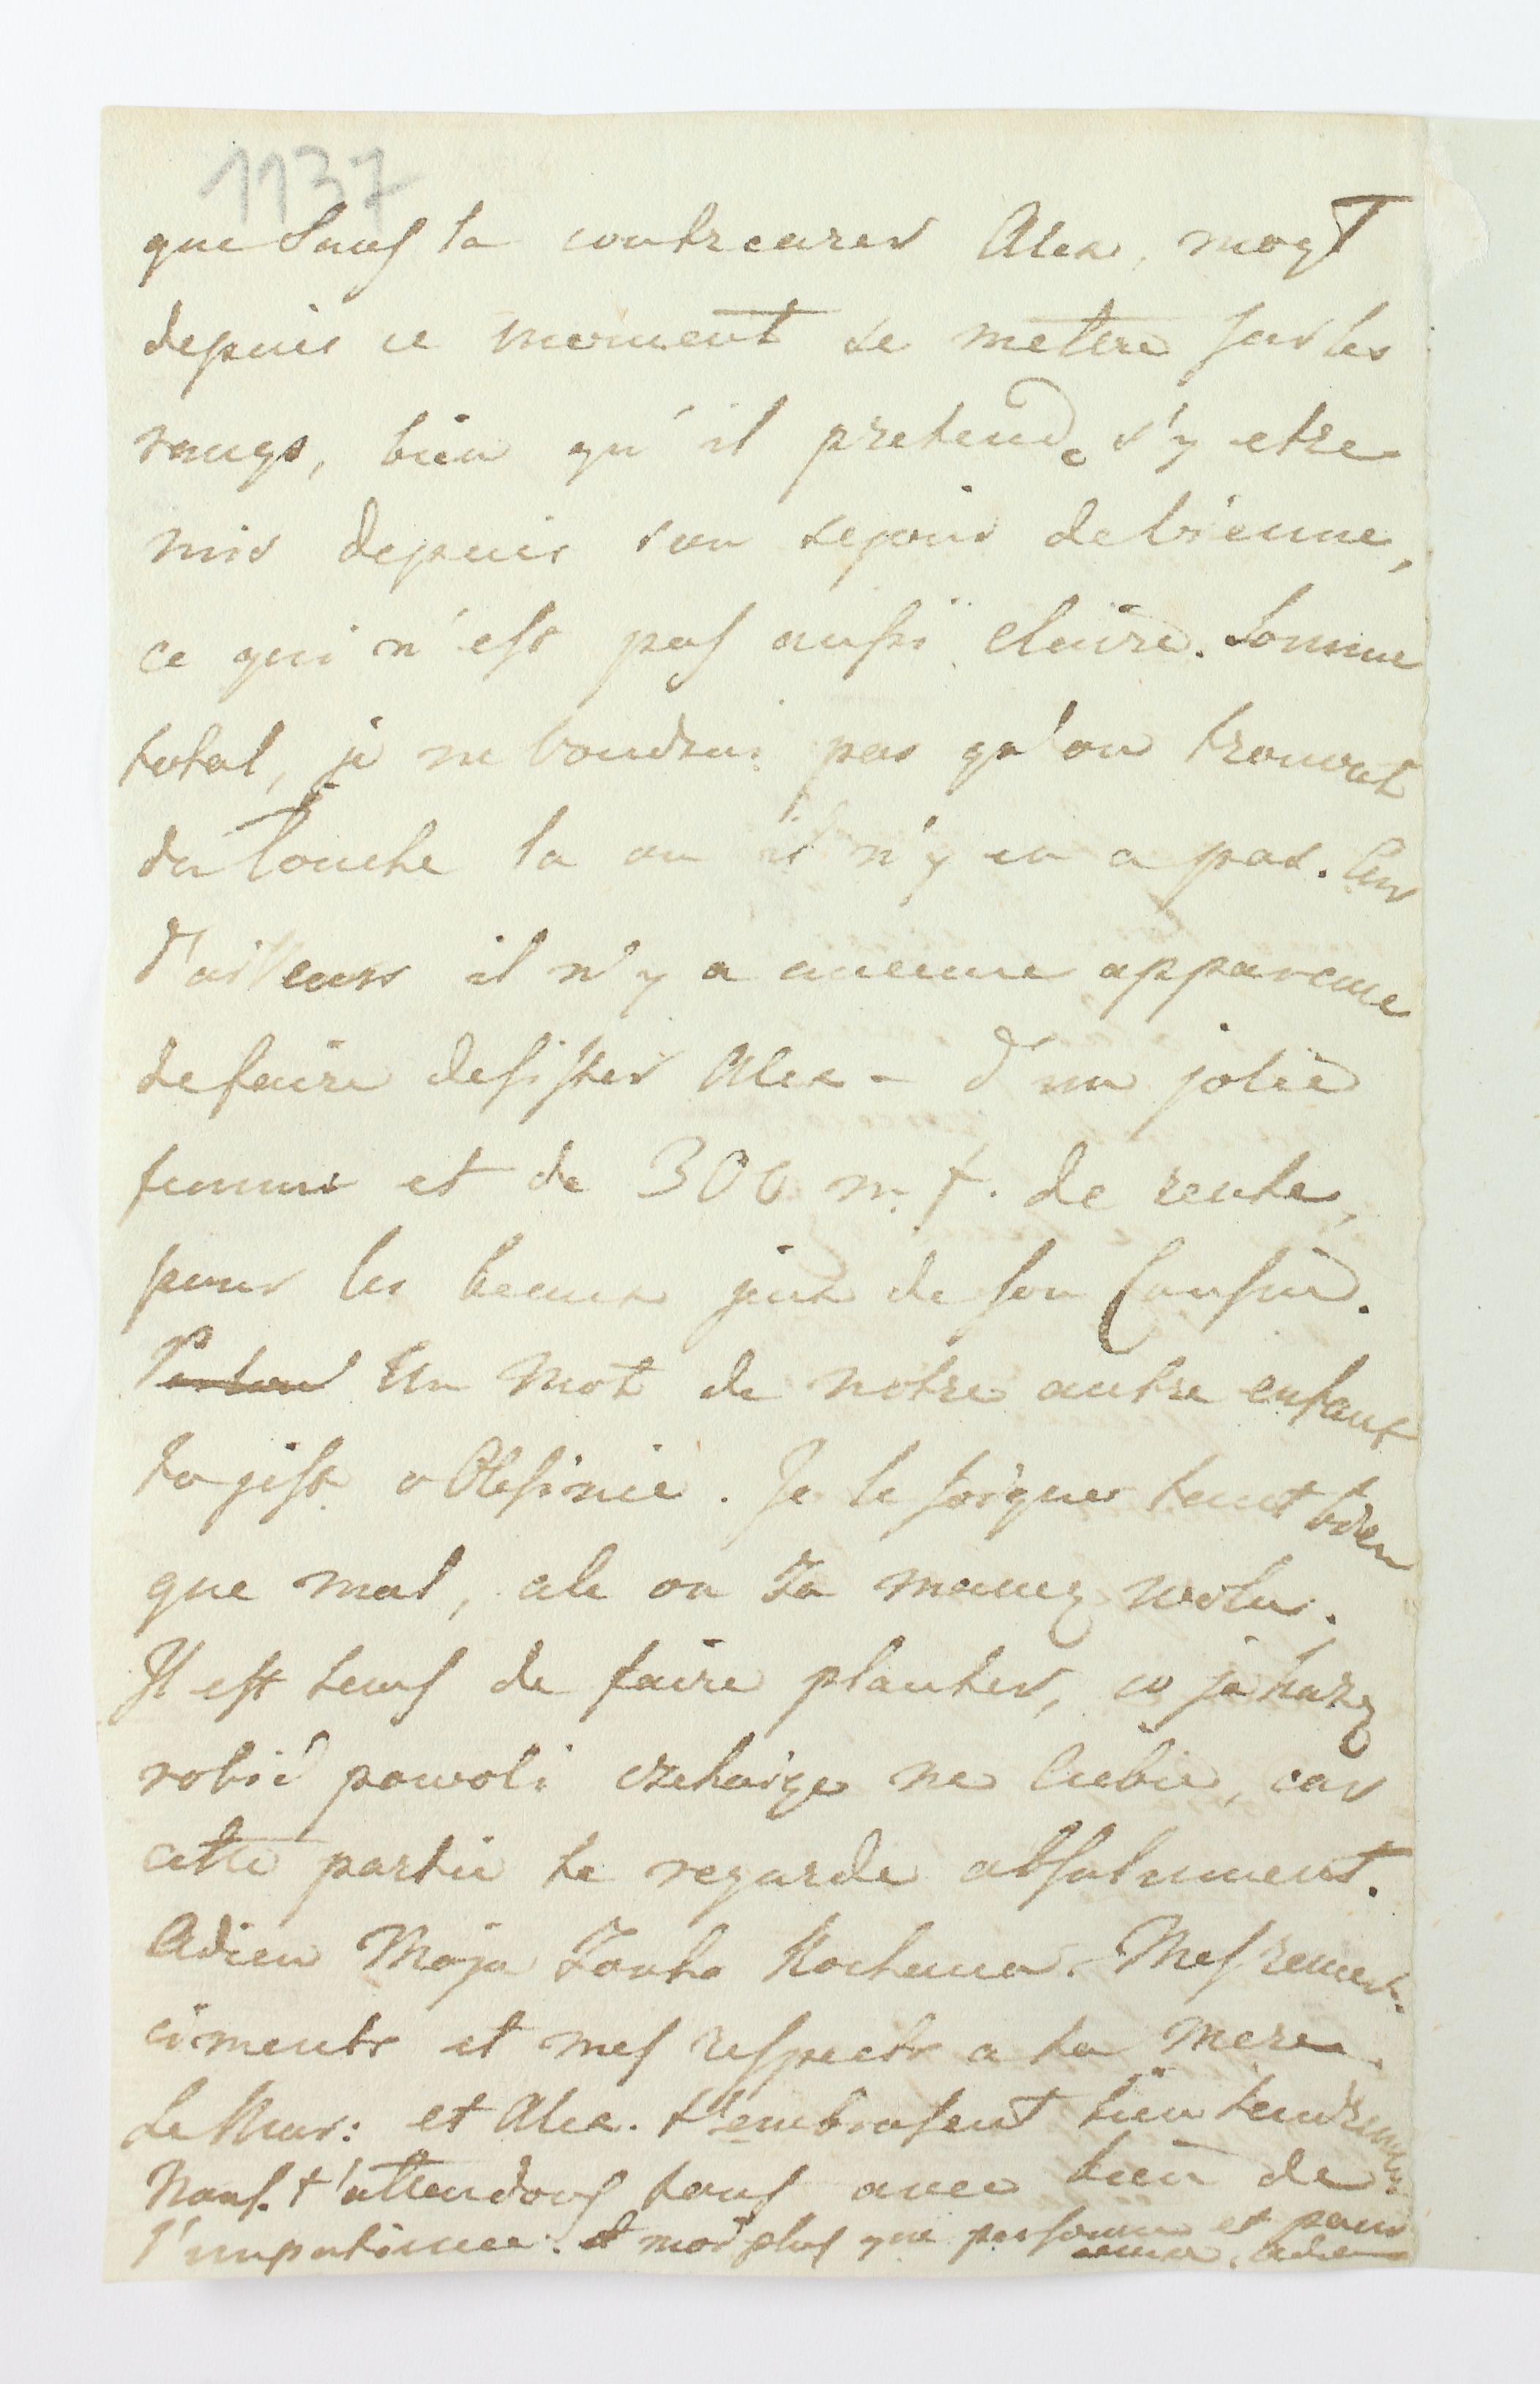 1137
que sans la contrecarer Alex, mogT
depuis ce moment se mettre sur les
rangs, bien qu'il pretend s'y etre
mis depuis son sejour de Vienne,
ce qui n'est pas aussi claire. Somme
total, je ne voudrai pas qu'on trouvat
du louche la ou il n'y en a pas. Car
d'ailleurs il n'y a aucune apparence
de faire desister Alex - d'un jolie
femme et de 300 m. f. de rente,
pour les beaux jeux de son Cousin.
Un mot de notre autre enfant
to jest o Olesinie. Je le soigner tant bien
que mal, ale on Ta mamę woła.
Il est tems de faire planter, co ja karzę
robić powoli czekaiąc na Ciebie, car
cette partie te regarde absolument.
Adieu Moja Touto Kochana. Mes remer-
ciments et mes respects a ta mere.
Le Mar: et Alex. t'embrasent bien tendrement
Nous t'attendons tous avec bien de
l'impatience. et moi plus que personne et pour
cause. Adieu